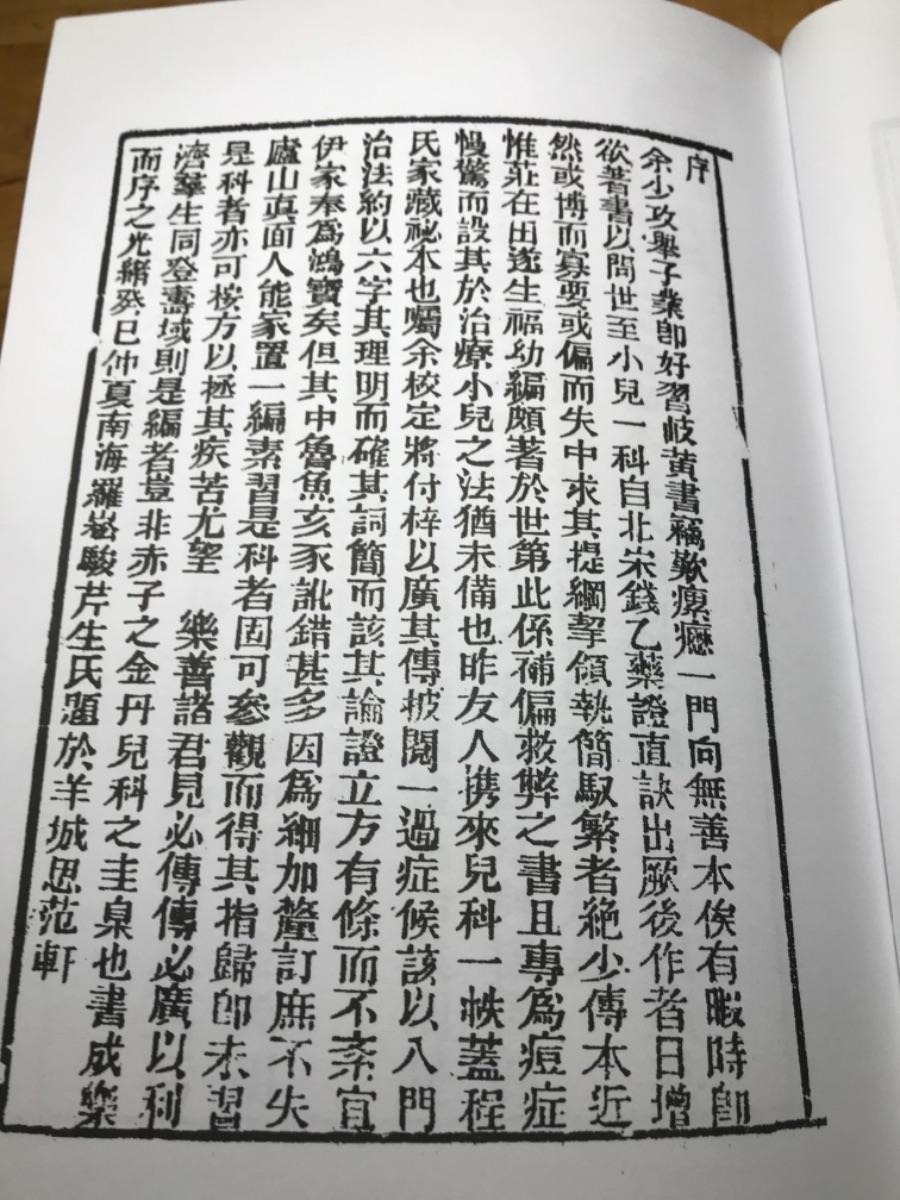 序
余少攻舉子業卽好習岐黃書竊歎瘝瘛一門向無善本俟有暇時卽
欲著書以問世至小兒一科自北宋錢乙藥證直訣出厥後作者日增
然或博而寡要或偏而失中求其提綱挈領執簡馭繁者絶少傳本近
惟莊在田遂生福幼編頗著於世第此係補偏救弊之書且專爲痘症
慢驚而設其於治療小兒之法猶未備也昨友人携來兒科一帙蓋程
氏家藏祕本也囑余校定將付梓以廣其傳披閱一過症候該以入門
治法約以六字其理明而確其詞簡而該其論證立方有條而不紊宜
伊家奉爲鴻寶矣但其中魯魚亥豕訛錯甚多因爲細加釐訂庶不失
廬山眞面人能家置一編素習是科者固可參觀而得其指歸卽未習
是科者亦可按方以拯其疾苦尤望　樂善諸君見必傳傳必廣以利
濟羣生同登壽域則是編者豈非赤子之金丹兒科之圭臬也書成樂
而序之光緒癸巳仲夏南海羅崧駿芹生氏題於羊城思范軒